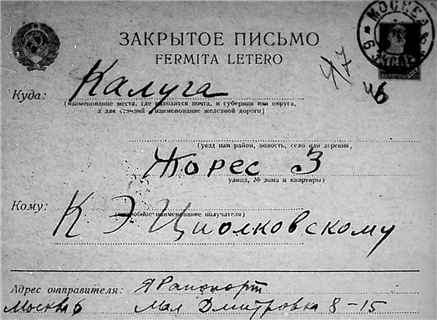 МОСКВА
ЗАКРЫТОЕ ПИСЬМО
FERMITA LETERO
Куда: Калуга
(наименование места, где находится почта, и губернии или округа,
а для станций наименование железной дороги)
(уезд или район, волость, село или деревня)
Жорес 3
улица, № дома и квартиры)
Кому: К Э Циолковскому
(подробное наименование получателя)
Адрес отправителя: Я Рапопорт
Москва 6 Мал Дмитровка 8-15